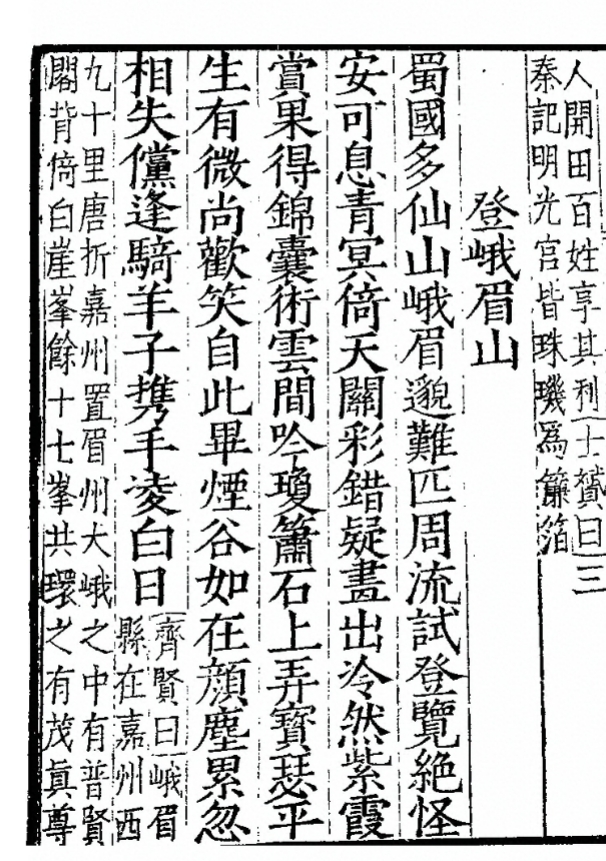 人開田百姓享其利士贇曰三
秦記明光宮皆珠璣爲簾箔
登峨眉山
蜀國多仙山峨眉邈難匹周流試登覽絕怪
安可息青冥倚天關彩錯疑畫出冷然紫霞
賞果得錦囊術雲間吟瓊簫石上弄寶瑟平
生有微尚歡笑自此畢煙谷如在顔塵累忽
相失儻逢騎羊子携手凌白日
齊賢曰峨眉
縣在嘉州西
九十里唐折嘉州置眉州大峨之中有普賢
閣背倚白崖峯餘十七峯共環之有茂眞尊